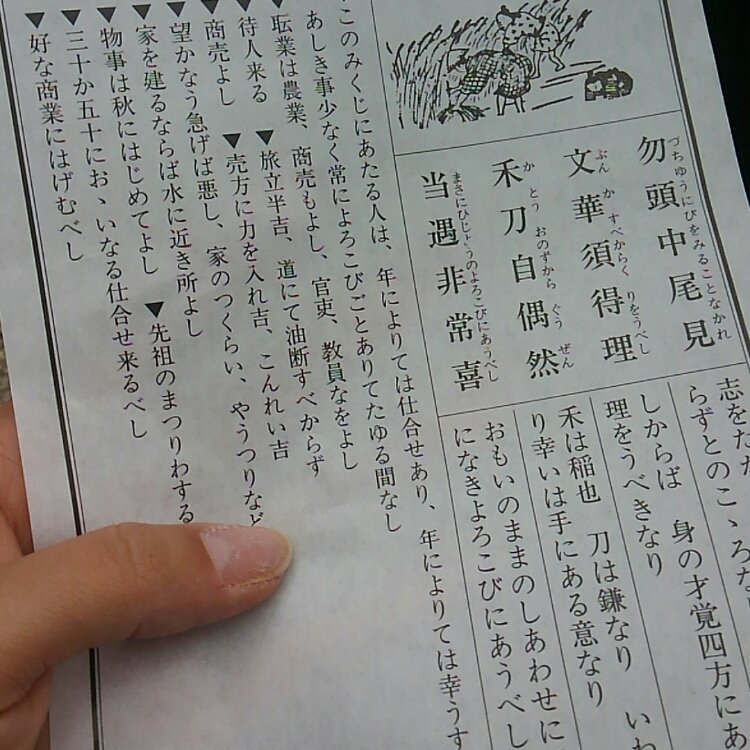 づちゆうにびをみることなかれ
勿頭中尾見
ぶんかすべからくりをうべし
文華須得理
かとうおのずからぐうぜん
禾刀自偶然
まさにひじょうのよろこびにあうべし
当遇非常喜
志をた
らずとのこゝろな
しからば　身の才覚四方にあ
理をうべきなり
禾は稲也　刀は鎌なり　いわ
り幸いは手にある意なり
おもいのままのしあわせに
になきよろこびにあうべし
このみくじにあたる人は、年によりては仕合せあり、年によりては幸うす
あしき事少なく常によろこびごとありてたゆる間なし
▼耺業は農業、商売もよし、官吏、教員なをよし
▼待人来る　▼旅立半吉、道にて油断すべからず
▼商売よし　▼売方に力を入れ吉、こんれい吉
▼望かなう急げば悪し、家のつくらい、やうつりなど
▼家を建るならば水に近き所よし
▼物事は秋にはじめてよし　▼先祖のまつりわする
▼三十か五十におゝいなる仕合せ来るべし
▼好な商業にはげむべし